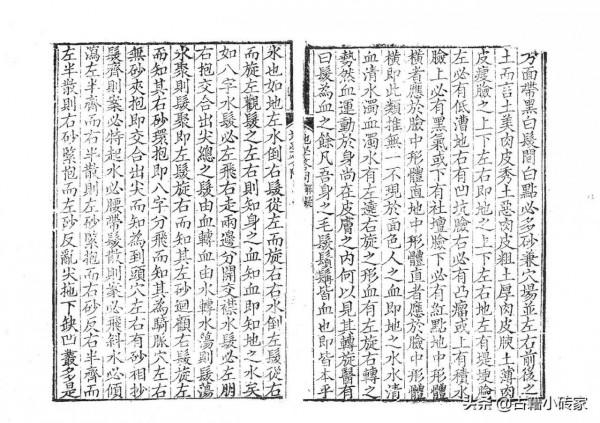 方面帶黑白髮間白點必多砂兼穴塲並左右前後之
土而言土美肉皮秀土惡肉皮粗土厚肉皮腴土薄肉
皮瘦臉之上下左右即地之上下左右地左有堤埂臉
左必有低漕地右有凹坑臉右必有凸瘤或上有積水
臉上必有黑氣或下有社壇臉下必有紅點地中形體
橫者應於臉中形體直地中形體直者應於臉中形體
橫即此類推無一不現於面色人之血即地之水水清
血清水濁血濁水有左遶右旋之形血有左旋右轉之
勢然血運動於身尚在皮膚之內何以見其轉旋醫有
曰髮為血之餘凡吾身之毛髮鬚鬍皆血也即皆本乎
水也如地左水倒右髮從左而旋右右水倒左髮從右
而旋左觀髮之左右則知身之血知血即知地之水矣
如八字水髮必左飛右走兩邊分開交襟水髮必左朋
右抱交合出尖總之髮由血轉血由水轉水蕩則髮蕩
水聚則髮聚即左髮旋右而知其左砂迴顧右髮旋左
而知其右砂環抱即八字分飛而知其為騎脈穴左右
無砂夾抱即交合出尖而知為到頭穴左右有砂相抄
髮齊則案必特起水必腰帶髮散則案必飛斜水必傾
瀉左半齊而右半散則左砂緊抱而右砂反右半齊而
左半散則右砂緊抱而左砂反亂尖拖下鈌凹叢多是
头条@古籍小砖家